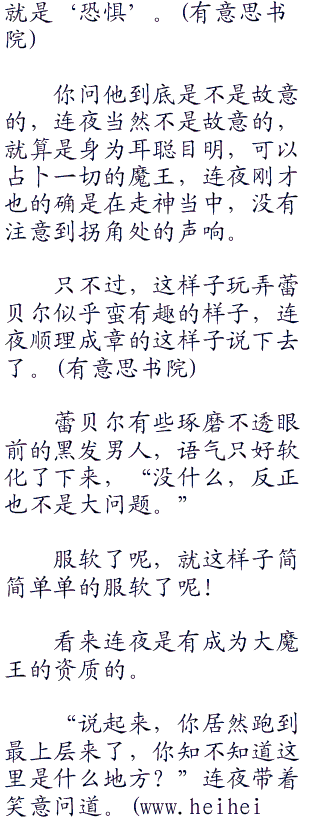 就是‘恐惧’。(有意思书
院)
你问他到底是不是故意
的，连夜当然不是故意的，
就算是身为耳聪目明，可以
占卜一切的魔王，连夜刚才
也的确是在走神当中，没有
注意到拐角处的声响。
只不过，这样子玩弄蕾
贝尔似乎蛮有趣的样子，连
夜顺理成章的这样子说下去
了。(有意思书院)
蕾贝尔有些琢磨不透眼
前的黑发男人，语气只好软
化了下来，“没什么，反正
也不是大问题。”
服软了呢，就这样子简
简单单的服软了呢！
看来连夜是有成为大魔
王的资质的。
“说起来，你居然跑到
最上层来了，你知不知道这
里是什么地方？”连夜带着
笑意问道。(www.heihei